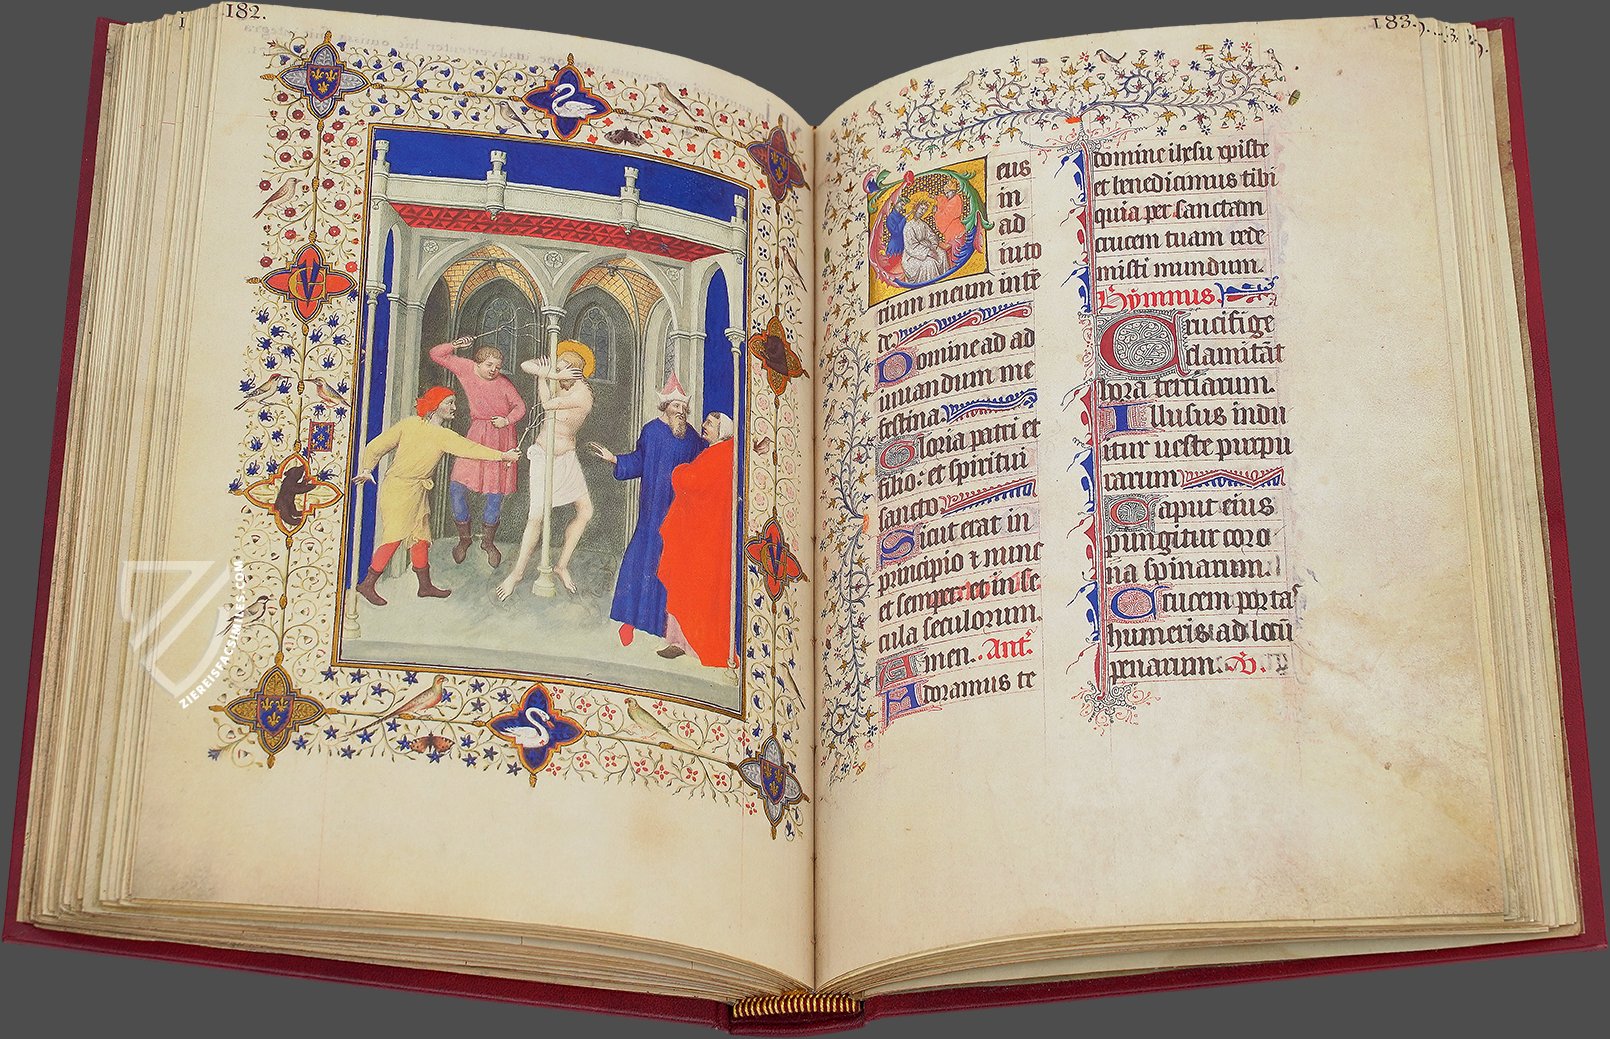 182.
183.
Deus
in
ad
iuto
rium meum intē
de.
Domine ad ad
iuuandum me
festina.
Gloria patri et
filio: et spiritui
sancto.
Sicut erat in
principio ⁊ nunc
et semper: et in se
cula seculorum.
Amen. Antᵃ.
Adoramus te
domine ihesu xpiste
et benedicimus tibi
quia per sanctam
crucem tuam rede
misti mundum.
Hymnus.
Crucifige
clamitāt
hora terciarum.
Illusus indu
itur ueste purpu
rarum
Caput eius
pungitur coro
na spinarum.
Crucem portat
humeris ad locū
penarum.
ZIEREISFACSIMILES.COM